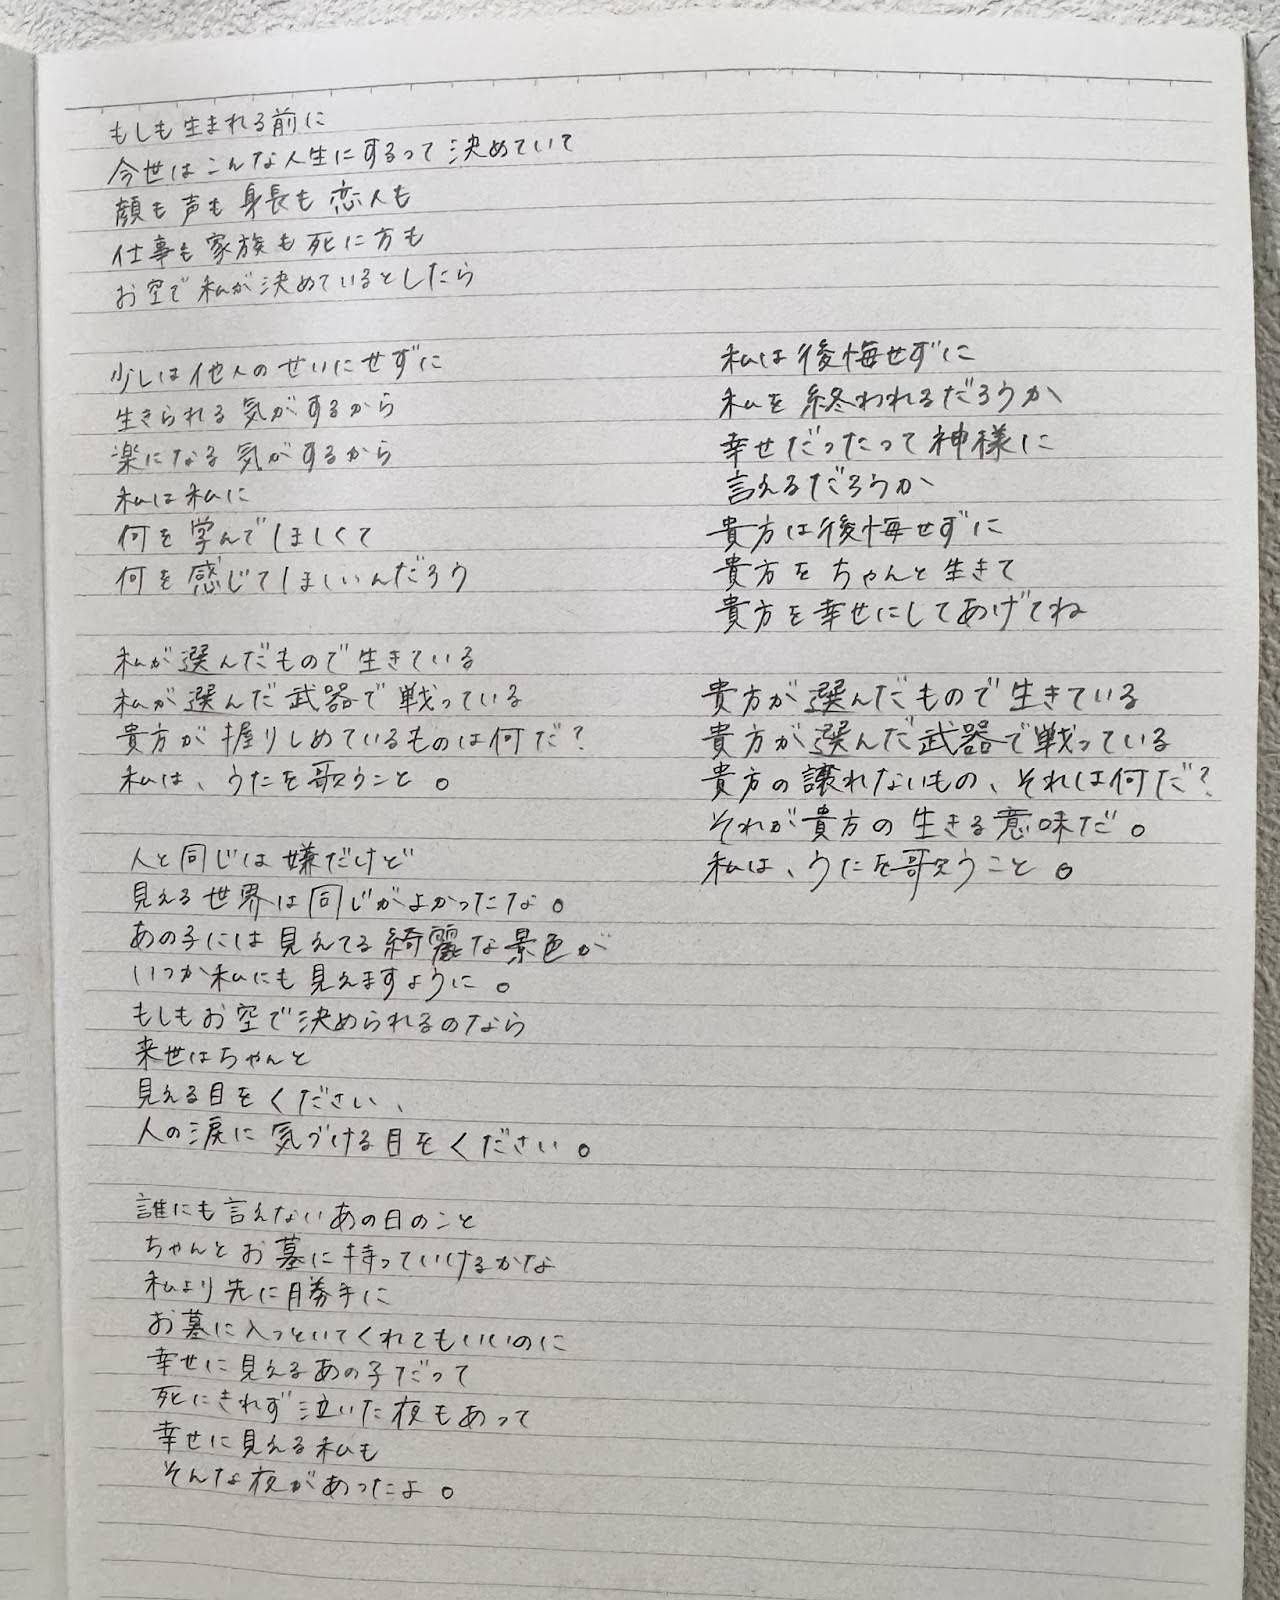 もしも生まれる前に
今世はこんな人生にするって決めていて
顔も声も身長も恋人も
仕事も家族も死に方も
お空で私が決めているとしたら
少しは他人のせいにせずに
生きられる気がするから
楽になる気がするから
私は私に
何を学んでほしくて
何を感じてほしいんだろう
私が選んだもので生きている
私が選んだ武器で戦っている
貴方が握りしめているものは何だ?
私は、うたを歌うこと。
人と同じは嫌だけど
見える世界は同じがよかったな。
あの子には見えてる綺麗な景色が
いつか私にも見えますように。
もしもお空で決められるのなら
来世はちゃんと
見える目をください、
人の涙に気づける目をください。
誰にも言えないあの日のこと
ちゃんとお墓に持っていけるかな
私より先に勝手に
お墓に入っといてくれてもいいのに
幸せに見えるあの子だって
死にきれず泣いた夜もあって
幸せに見える私も
そんな夜があったよ。
私は後悔せずに
私を終われるだろうか
幸せだったって神様に
言えるだろうか
貴方は後悔せずに
貴方をちゃんと生きて
貴方を幸せにしてあげてね
貴方が選んだもので生きている
貴方が選んだ武器で戦っている
貴方の譲れないもの、それは何だ?
それが貴方の生きる意味だ。
私は、うたを歌うこと。